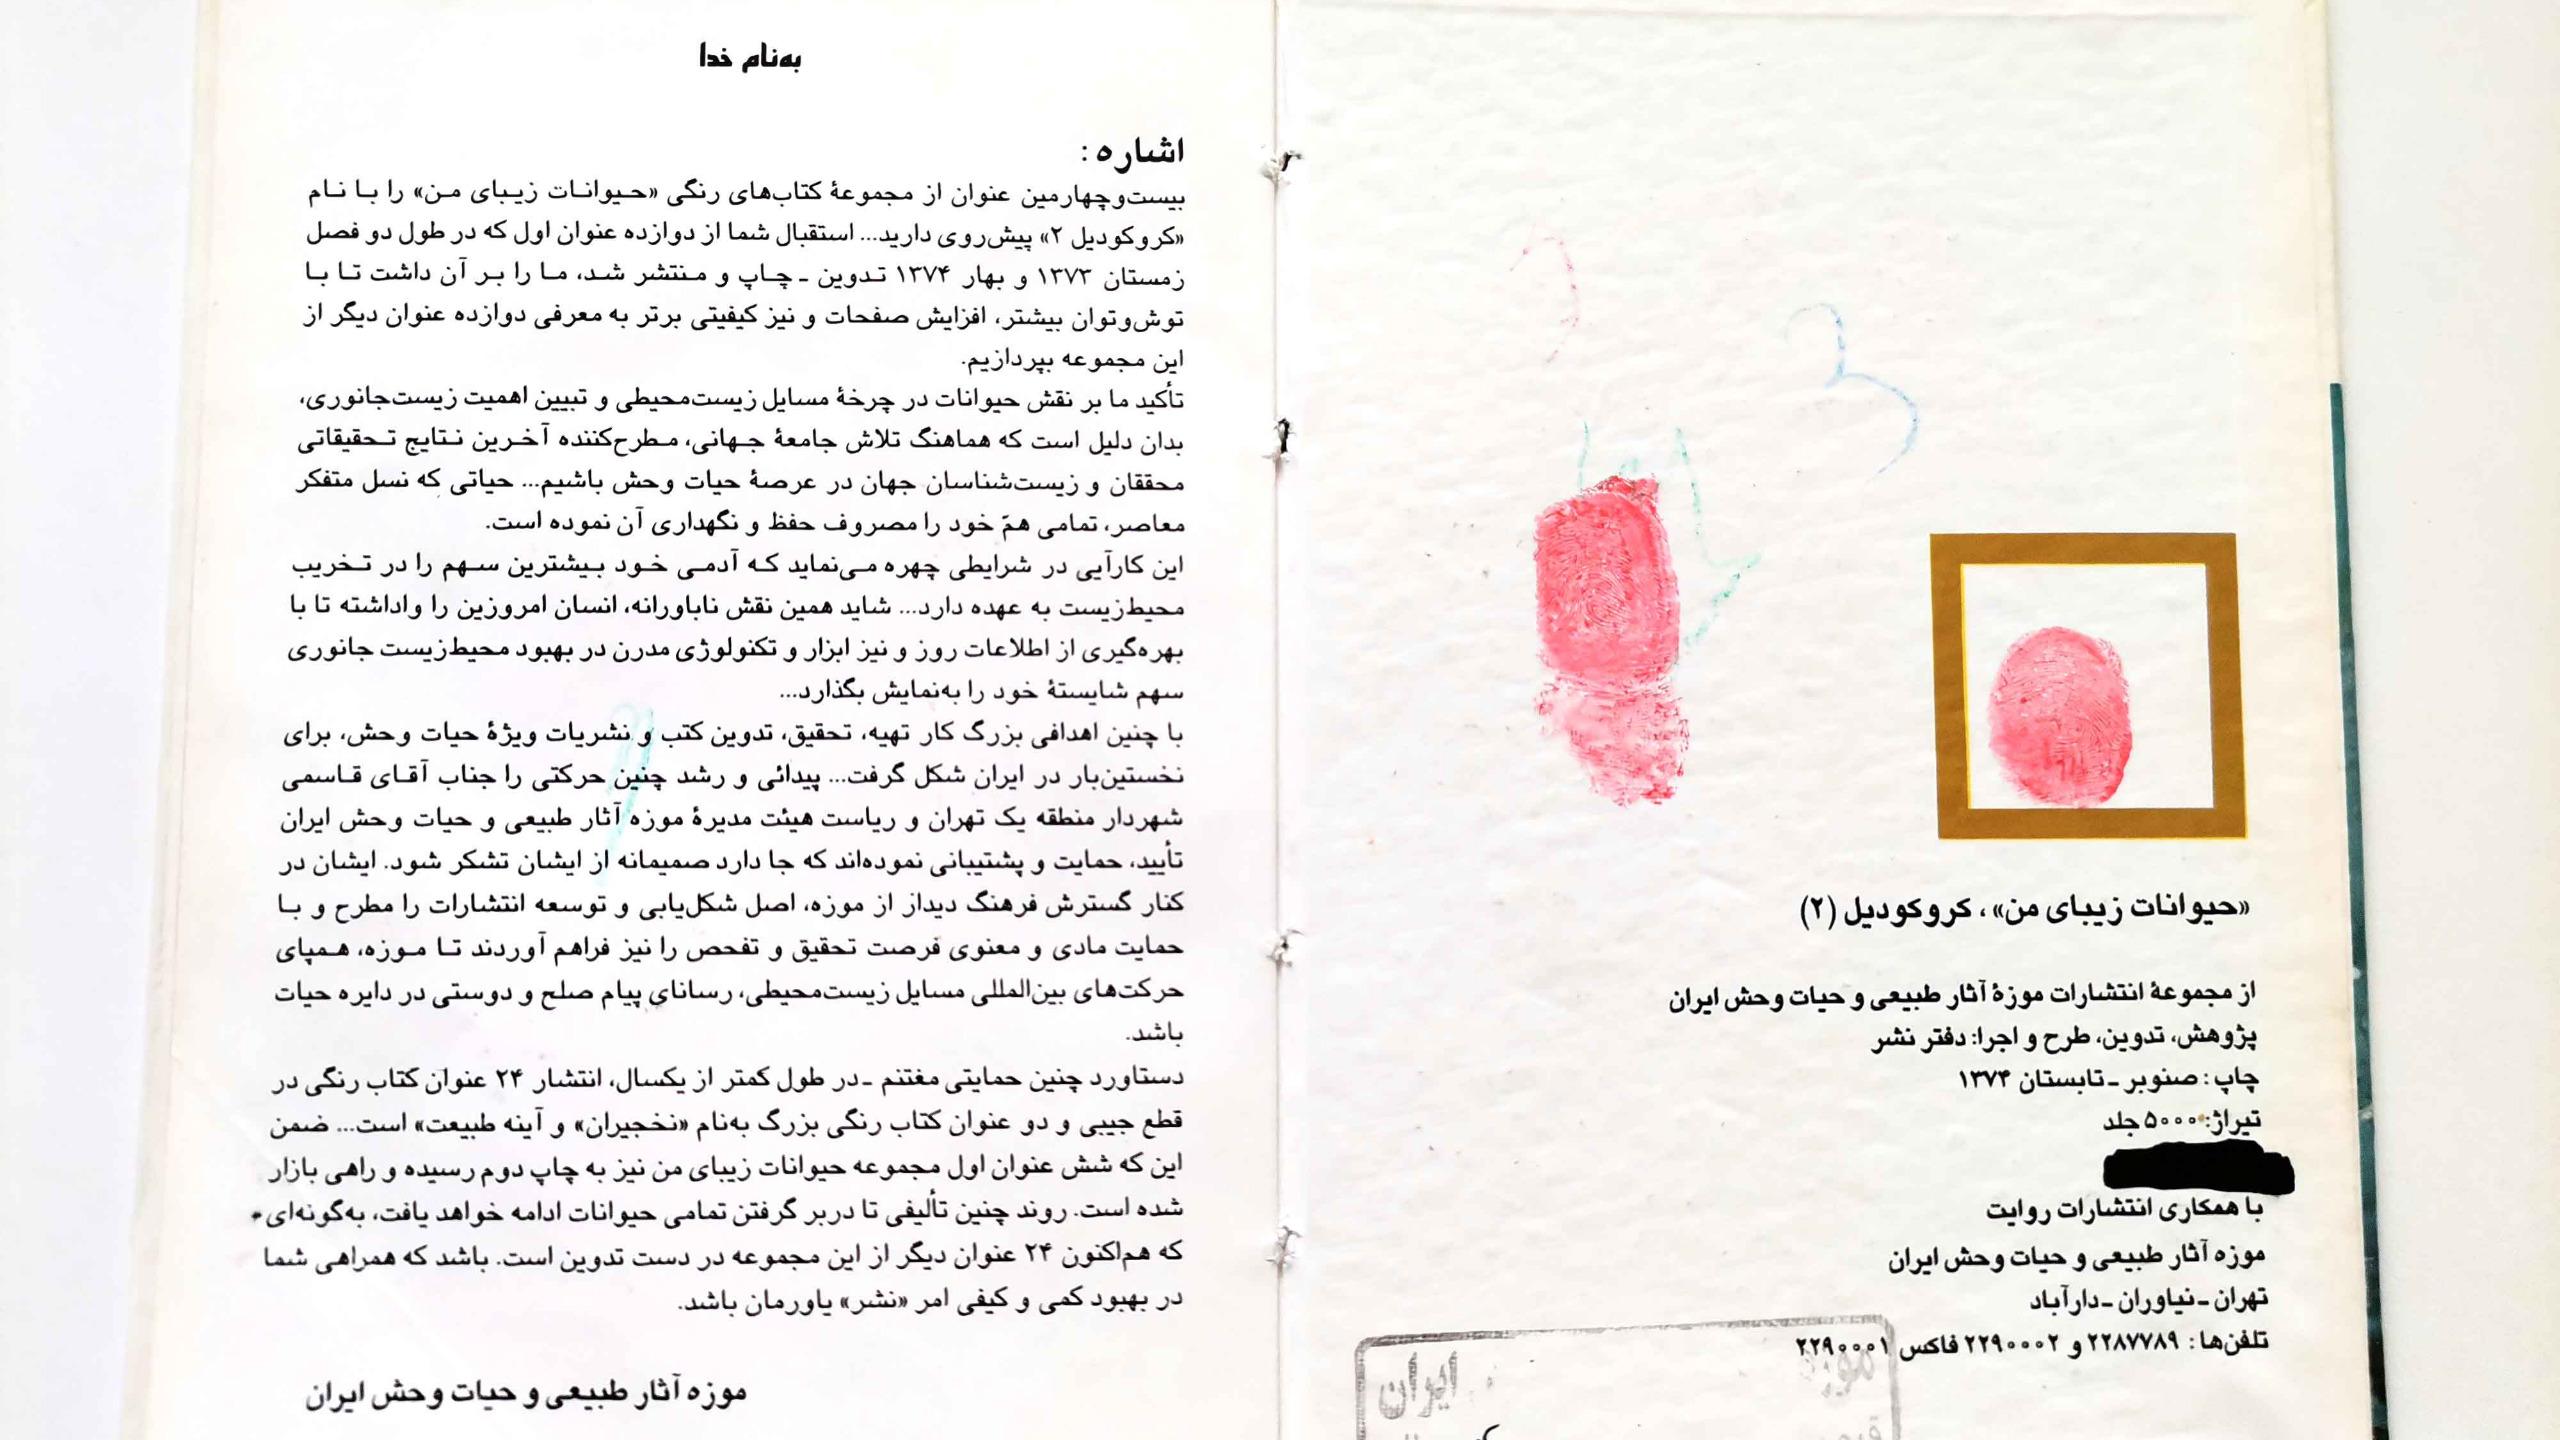 به‌نام خدا
اشاره :
بیست‌وچهارمین عنوان از مجموعهٔ کتاب‌های رنگی «حیوانات زیبای من» را با نام
«کروکودیل ۲» پیش‌روی دارید... استقبال شما از دوازده عنوان اول که در طول دو فصل
زمستان ۱۳۷۳ و بهار ۱۳۷۴ تدوین ـ چاپ و منتشر شد، ما را بر آن داشت تا با
توش‌وتوان بیشتر، افزایش صفحات و نیز کیفیتی برتر به معرفی دوازده عنوان دیگر از
این مجموعه بپردازیم.
تأکید ما بر نقش حیوانات در چرخهٔ مسایل زیست‌محیطی و تبیین اهمیت زیست‌جانوری،
بدان دلیل است که هماهنگ تلاش جامعهٔ جهانی، مطرح‌کننده آخرین نتایج تحقیقاتی
محققان و زیست‌شناسان جهان در عرصهٔ حیات وحش باشیم... حیاتی که نسل متفکر
معاصر، تمامی همّ خود را مصروف حفظ و نگهداری آن نموده است.
این کارآیی در شرایطی چهره می‌نماید که آدمی خود بیشترین سهم را در تخریب
محیط‌زیست به عهده دارد... شاید همین نقش ناباورانه، انسان امروزین را واداشته تا با
بهره‌گیری از اطلاعات روز و نیز ابزار و تکنولوژی مدرن در بهبود محیط‌زیست جانوری
سهم شایستهٔ خود را به‌نمایش بگذارد...
با چنین اهدافی بزرگ کار تهیه، تحقیق، تدوین کتب و نشریات ویژهٔ حیات وحش، برای
نخستین‌بار در ایران شکل گرفت... پیدائی و رشد چنین حرکتی را جناب آقای قاسمی
شهردار منطقه یک تهران و ریاست هیئت مدیرهٔ موزه آثار طبیعی و حیات وحش ایران
تأیید، حمایت و پشتیبانی نموده‌اند که جا دارد صمیمانه از ایشان تشکر شود. ایشان در
کنار گسترش فرهنگ دیداز از موزه، اصل شکل‌یابی و توسعه انتشارات را مطرح و با
حمایت مادی و معنوی فرصت تحقیق و تفحص را نیز فراهم آوردند تا موزه، همپای
حرکت‌های بین‌المللی مسایل زیست‌محیطی، رسانای پیام صلح و دوستی در دایره حیات
باشد.
دستاورد چنین حمایتی مغتنم ـ در طول کمتر از یکسال، انتشار ۲۴ عنوان کتاب رنگی در
قطع جیبی و دو عنوان کتاب رنگی بزرگ به‌نام «نخجیران» و آینه طبیعت» است... ضمن
این که شش عنوان اول مجموعه حیوانات زیبای من نیز به چاپ دوم رسیده و راهی بازار
شده است. روند چنین تألیفی تا دربر گرفتن تمامی حیوانات ادامه خواهد یافت، به‌گونه‌ای
که هم‌اکنون ۲۴ عنوان دیگر از این مجموعه در دست تدوین است. باشد که همراهی شما
در بهبود کمی و کیفی امر «نشر» یاورمان باشد.
موزه آثار طبیعی و حیات وحش ایران
«حیوانات زیبای من»، کروکودیل (۲)
از مجموعهٔ انتشارات موزهٔ آثار طبیعی و حیات وحش ایران
پژوهش، تدوین، طرح و اجرا: دفتر نشر
چاپ : صنوبر ـ تابستان ۱۳۷۴
تیراژ: ۵۰۰۰ جلد
با همکاری انتشارات روایت
موزه آثار طبیعی و حیات وحش ایران
تهران ـ نیاوران ـ دارآباد
تلفن‌ها : ۲۲۸۷۷۸۹ و ۲۲۹۰۰۰۲ فاکس ۲۲۹۰۰۰۱
موزه
ایران